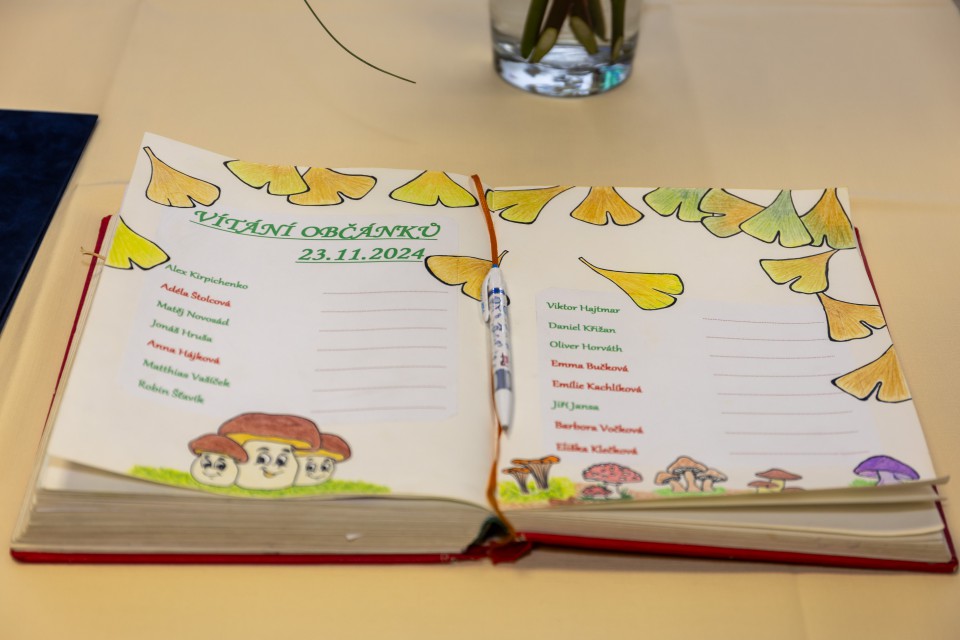 VÍTÁNÍ OBČÁNKŮ
23.11.2024
Alex Kirpichenko
Adéla Štolcová
Matěj Novosád
Jonáš Hruša
Anna Hájková
Matthias Vašíček
Robin Šťavík
Viktor Hajtmar
Daniel Křišan
Oliver Horváth
Emma Bučková
Emílie Kachlíková
Jiří Jansa
Barbora Vočková
Eliška Klečková